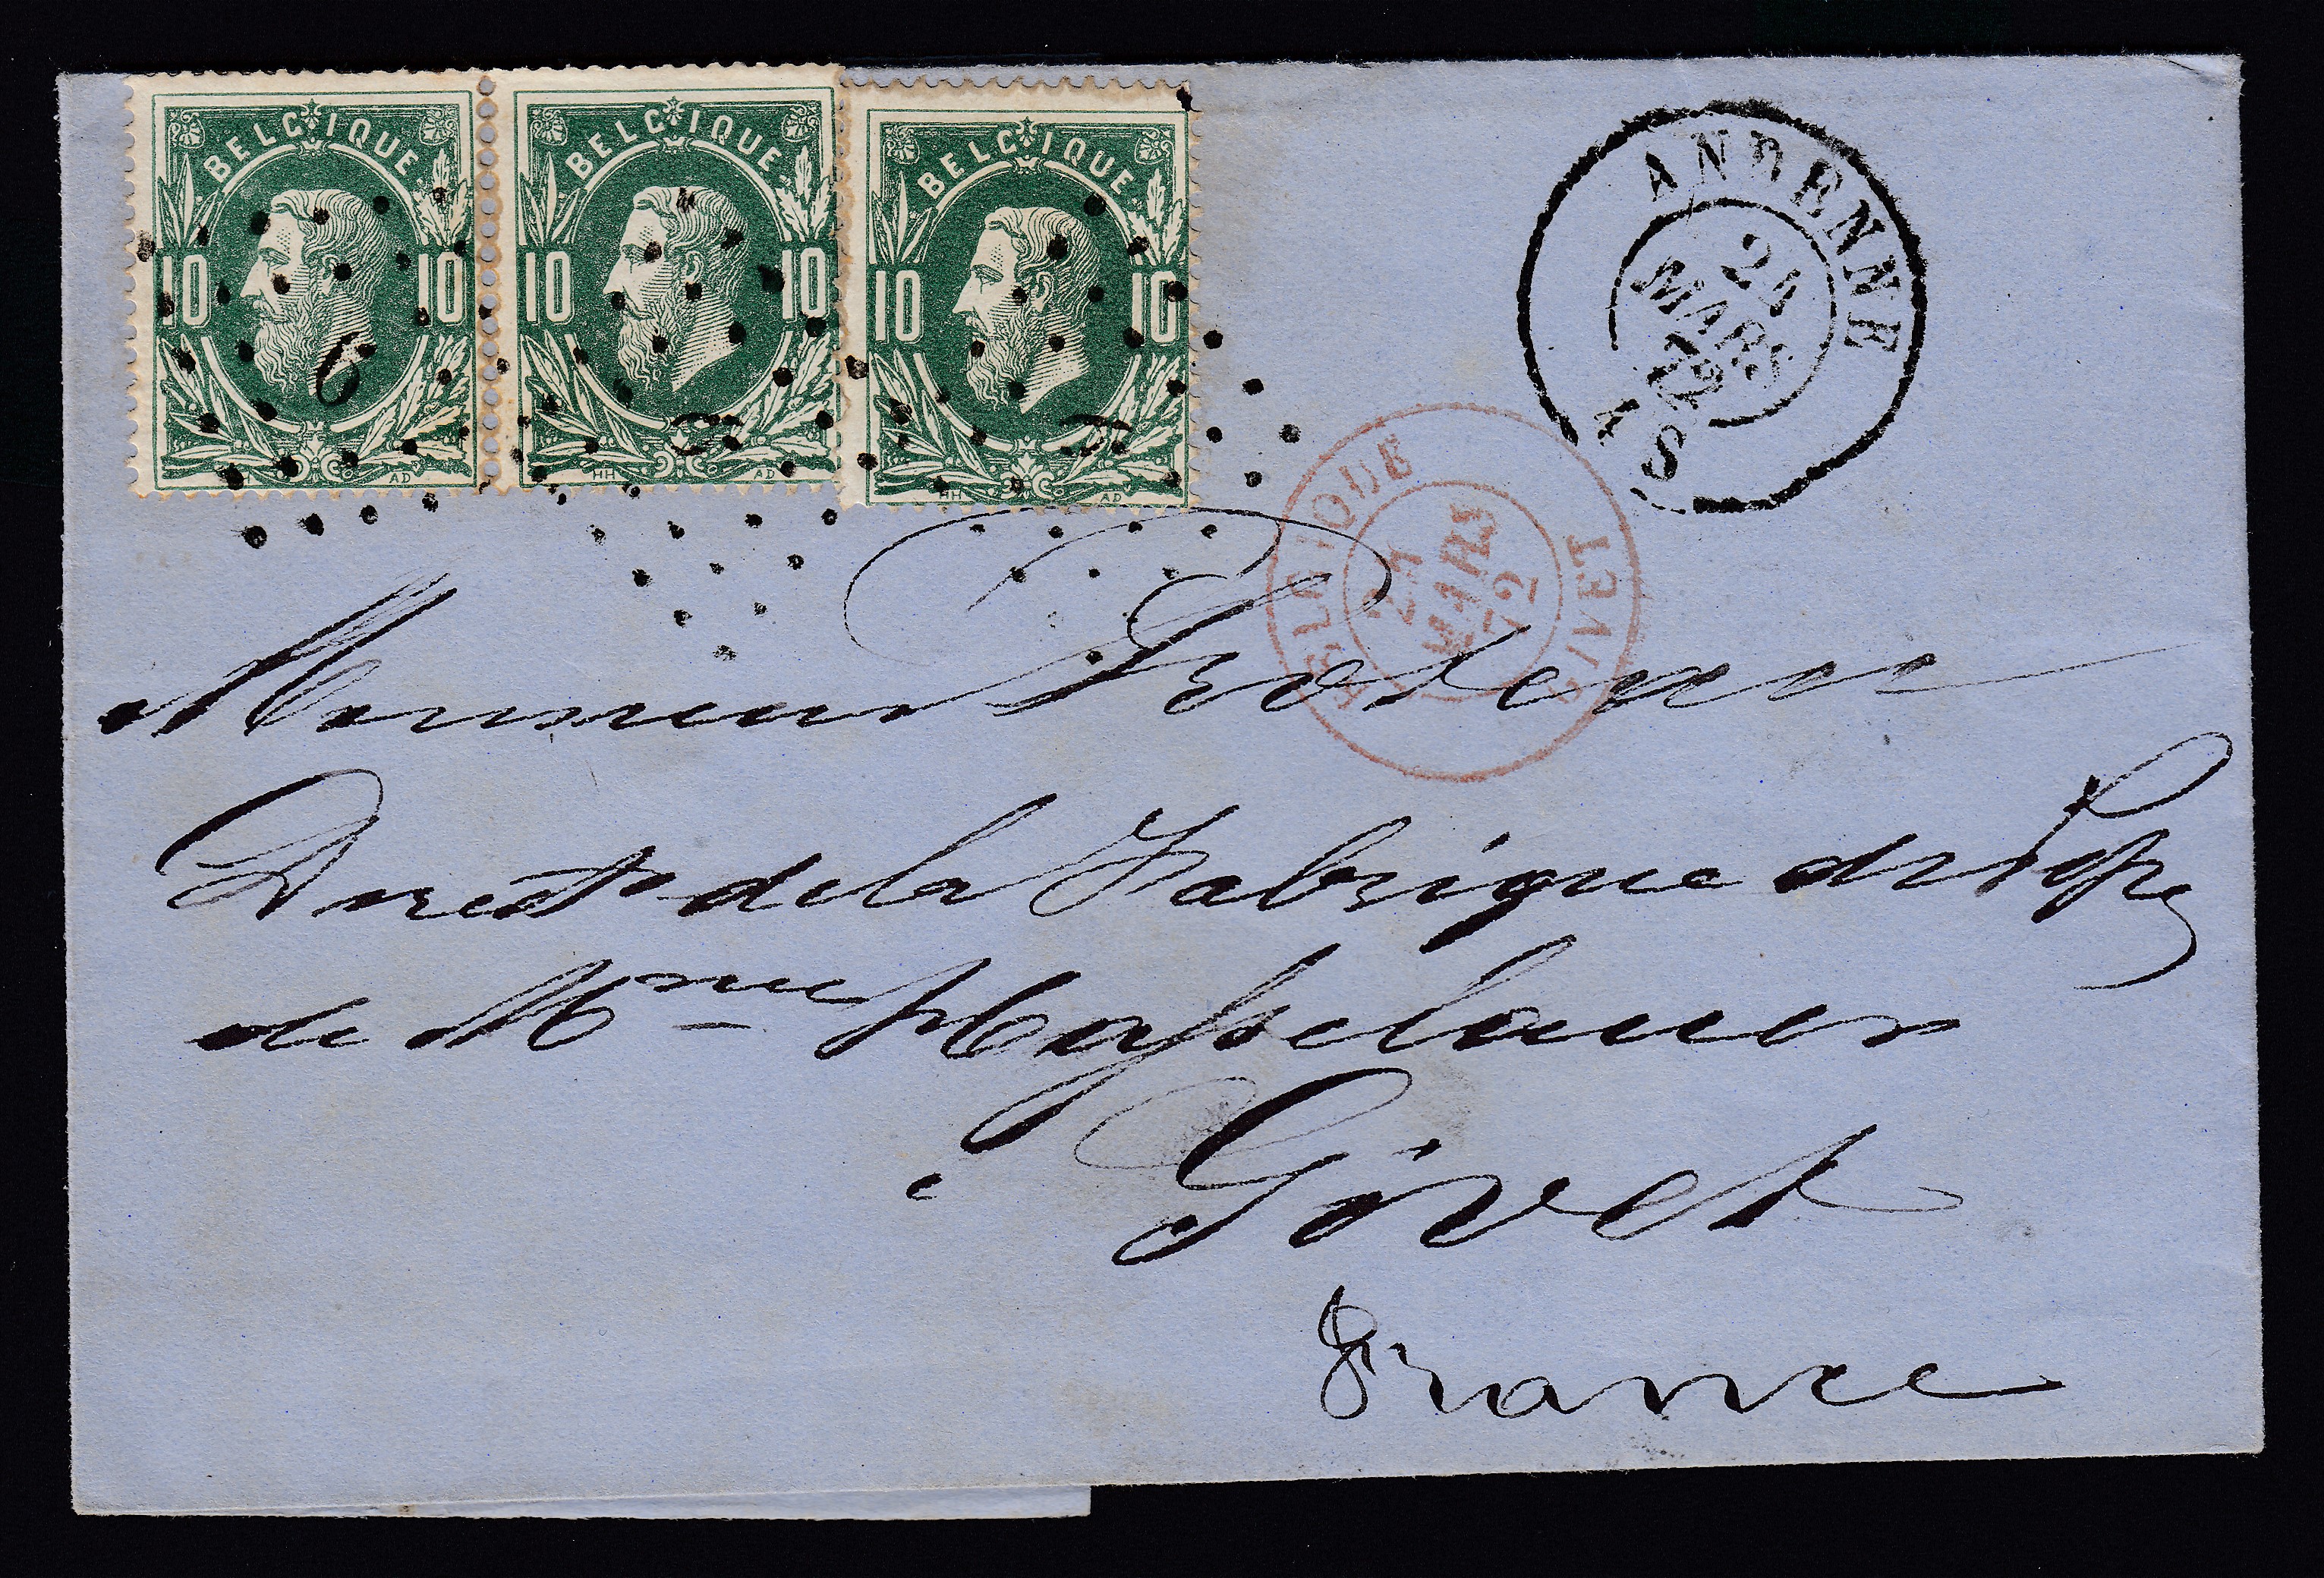 BELGIQUE
10 10
HH AD
BELGIQUE
10 10
HH AD
BELGIQUE
10 10
HH AD
6
6
6
ANDENNE
24
MARS
72
BELGIQUE
24
MARS
72
GIVET
Monsieur
Direct de la Fabrique de
de Mme Hasslauer
à Givet
France